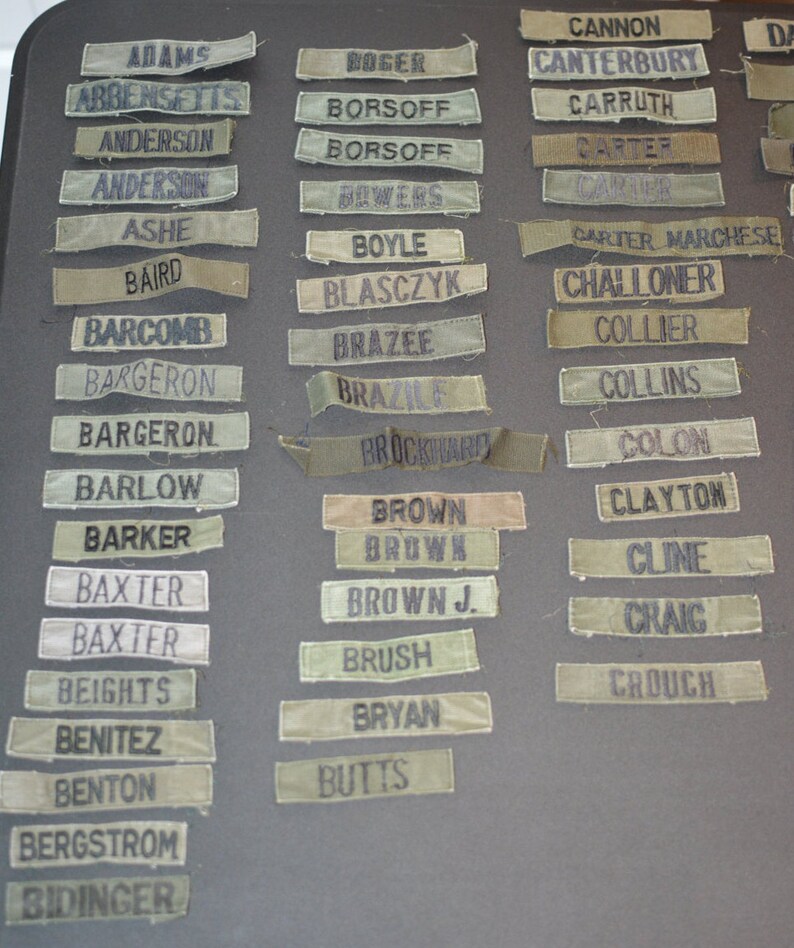 ADAMS
ABBENSETTS
ANDERSON
ANDERSON
ASHE
BAIRD
BARCOMB
BARGERON
BARGERON
BARLOW
BARKER
BAXTER
BAXTER
BEIGHTS
BENITEZ
BENTON
BERGSTROM
BIDINGER
BOGER
BORSOFF
BORSOFF
BOWERS
BOYLE
BLASCZYK
BRAZEE
BRAZILE
BROCKHARD
BROWN
BROWN
BROWN J.
BRUSH
BRYAN
BUTTS
CANNON
CANTERBURY
CARRUTH
CARTER
CARTER
CARTER MARCHESE
CHALLONER
COLLIER
COLLINS
COLON
CLAYTON
CLINE
CRAIG
CROUCH